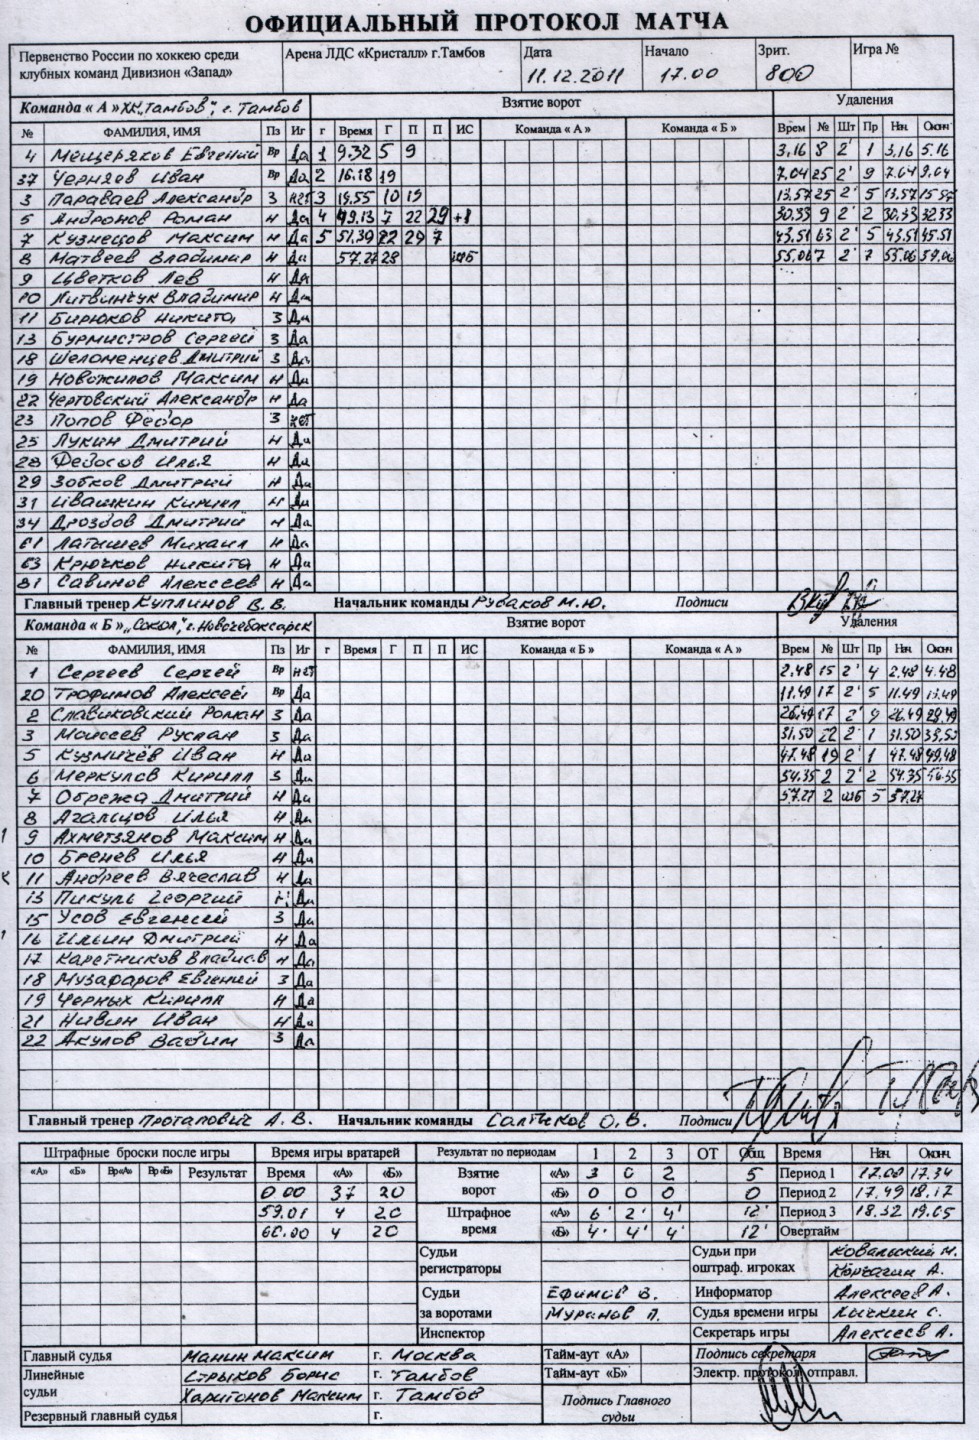 ОФИЦИАЛЬНЫЙ ПРОТОКОЛ МАТЧА
Первенство России по хоккею среди клубных команд Дивизион «Запад» Арена ЛДС «Кристалл» г.Тамбов Дата 11.12.2011 Начало 17.00 Зрит. 800 Игра №
Команда « А » ХК "Тамбов", г. Тамбов Взятие ворот Удаления
№ ФАМИЛИЯ, ИМЯ Пз Иг г Время Г П П ИС Команда « А » Команда « Б » Врем № Шт Пр Нач. Оконч.
4 Мещеряков Евгений Вр Да 1 9.32 5 9 3,16 8 2' 1 3,16 5.16
37 Черняев Иван Вр Да 2 16.18 19 7.04 25 2' 9 7.04 9.04
3 Параваев Александр З нет 3 19.55 10 19 13.57 25 2' 5 13.57 15.57
5 Андронов Роман Н Да 4 49.13 7 22 29 +1 30.33 9 2' 2 30.33 32.33
7 Кузнецов Максим Н Да 5 51.39 22 29 7 43.51 63 2' 5 43.51 45.51
8 Матвеев Владимир Н Да 57.27 28 55.06 7 2' 7 55.06
9 Цветков Лев Н Да
10 Литвинчук Владимир Н Да
11 Бирюков Никита З Да
13 Бурмистров Сергей З Да
18 Шеломенцев Дмитрий З Да
19 Новожилов Максим Н Да
22 Чертовский Александр Н Да
23 Попов Федор З нет
25 Лукин Дмитрий Н Да
28 Федосов Илья Н Да
29 Зобков Дмитрий Н Да
31 Ивашкин Кирилл Н Да
34 Дроздов Дмитрий Н Да
61 Латышев Михаил Н Да
63 Крючков Никита Н Да
81 Савинов Алексеев Н Да
Главный тренер Куплинов В.В. Начальник команды Рубаков М.Ю. Подписи
Команда « Б » "Сокол", г. Новочебоксарск Взятие ворот Удаления
№ ФАМИЛИЯ, ИМЯ Пз Иг г Время Г П П ИС Команда « Б » Команда « А » Врем № Шт Пр Нач. Оконч.
1 Сергеев Сергей Вр нет 2.48 15 2' 4 2.48 4.48
20 Трофимов Алексей Вр Да 11.49 17 2' 5 11.49 13.49
2 Славиковский Роман З Да 26.49 17 2' 9 26.49 28.49
3 Моисеев Руслан З Да 31.50 22 2' 1 31.50 33.50
5 Кузмичёв Иван Н Да 47.48 19 2' 1 47.48 49.48
6 Меркулов Кирилл З Да 54.35 2 2' 2 54.35 56.35
7 Обрежа Дмитрий Н Да 57.27 2 шб 5 57.27
8 Агальцов Илья Н Да
9 Ахметзянов Максим Н Да
10 Бренев Илья Н Да
11 Андреев Вячеслав Н Да
13 Пикуль Георгий Н Да
15 Усов Евгений З Да
16 Ильин Дмитрий Н Да
17 Каретников Владисл Н Да
18 Музафаров Евгений З Да
19 Черных Кирилл Н Да
21 Нивин Иван Н Да
22 Акулов Вадим З Да
Главный тренер Протапович А.В. Начальник команды Салтыков О.В. Подписи
Штрафные броски после игры Время игры вратарей Результат по периодам 1 2 3 ОТ Общ Время Нач. Оконч.
«А» «Б» Вр«А» Вр«Б» Результат Время «А» «Б» Взятие ворот «А» 3 0 2 5 Период 1 17.00 17.34
0.00 37 20 «Б» 0 0 0 0 Период 2 17.49 18.17
59.01 4 20 Штрафное время «А» 6' 2' 4' 12' Период 3 18.32 19.05
60.00 4 20 «Б» 4' 4' 4' 12' Овертайм
Судьи регистраторы Судьи при оштраф. игроках Ковальский М.
Корчагин А.
Судьи за воротами Ефимов В. Информатор Алексеев А.
Муранов П. Судья времени игры Хичкин С.
Инспектор Секретарь игры Алексеев А.
Главный судья Манин Максим г. Москва Тайм-аут «А» Подпись секретаря
Линейные судьи Стрыков Борис г. Тамбов Тайм-аут «Б» Электр. протокол отправл.
Харитонов Максим г. Тамбов Подпись Главного судьи
Резервный главный судья г.